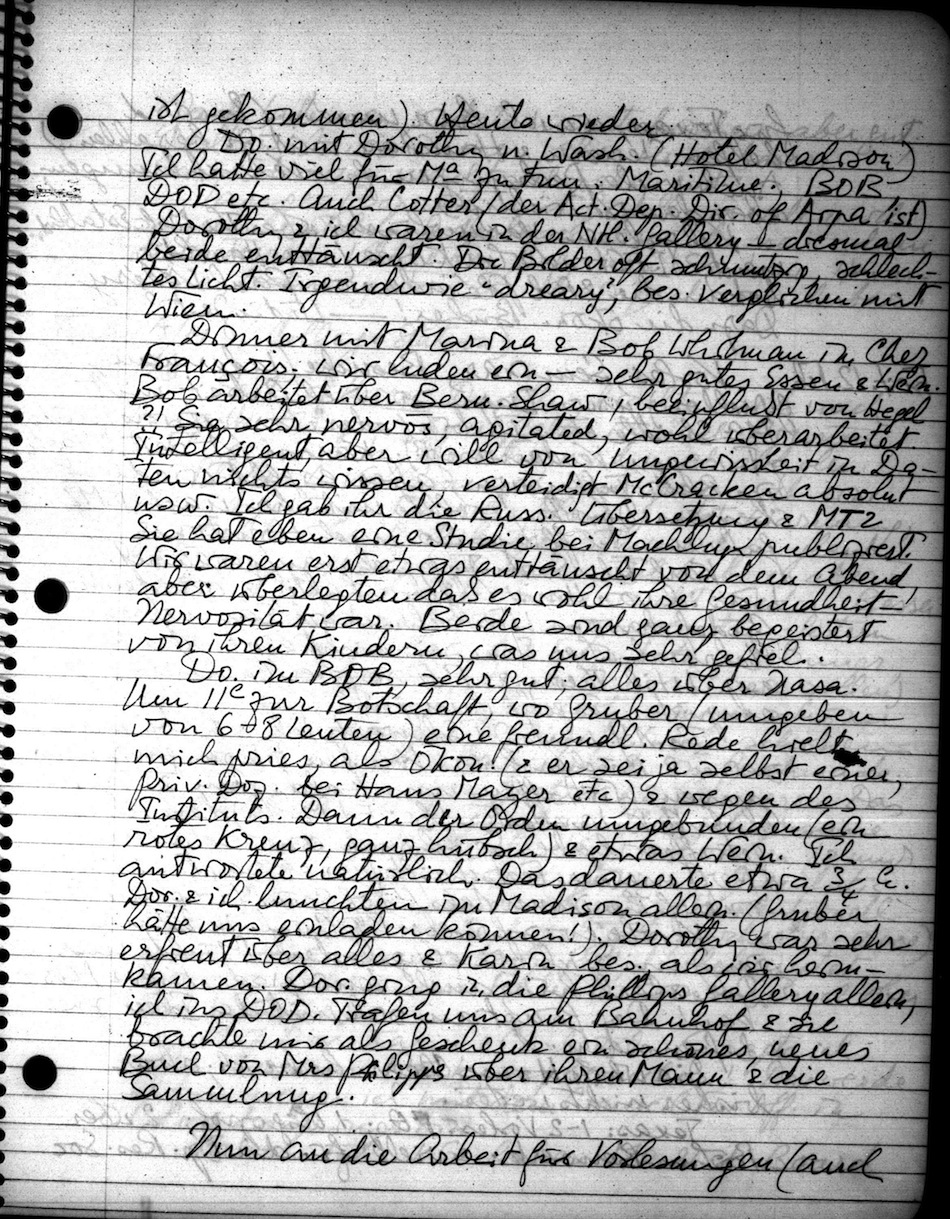 ist gekommen). Heute wieder
Do. mit Dorothy n. Wash. (Hotel Madison)
Ich hatte viel für Ma zu tun: Maritime. BOB
DOD etc. Auch Cotter (der Act. Dep. Dir. of Arpa ist)
Dorothy & ich waren in der Ntl. Gallery – diesmal
beide enttäuscht. Die Bilder oft schmutzig, schlech-
tes Licht. Irgendwie "dreary", bes. verglichen mit
Wien.
Dinner mit Marina & Bob Whitman in Chez
François. Wir luden ein – sehr gutes Essen & Wein.
Bob arbeitet über Bern. Shaw, beeinflusst von Hegel
?! Sie sehr nervös, agitated, wohl überarbeitet
Intelligent, aber will von Ungewissheit in Da-
ten nichts wissen, verteidigt McCracken absolut
usw. Ich gab ihr die Russ. Übersetzung & MT2
Sie hat eben eine Studie bei Machlup publiziert.
Wir waren erst etwas enttäuscht von dem Abend,
aber überlegten das es wohl ihre Gesundheit –
Nervosität war. Beide sind ganz begeistert
von ihren Kindern, was uns sehr gefiel.
Do. im BOB, sehr gut; alles über Nasa.
Um 11h zur Botschaft, wo Gruber (umgeben
von 6-8 Leuten) eine freundl. Rede hielt
mich pries, als Ökon. (& er sei ja selbst einer,
Priv. Doz. bei Hans Mayer etc) & wegen des
Instituts. Dann der Orden umgebunden (ein
rotes Kreuz, ganz hübsch) & etwas Wein. Ich
antwortete natürlich. Das dauerte etwa 3/4 h.
Dor. & ich lunchten im Madison allein. (Gruber
hätte uns einladen können!). Dorothy war sehr
erfreut über alles & Karin bes. als wir heim-
kamen. Dor. ging in die Phillips Gallery allein,
ich ins DOD. Trafen uns am Bahnhof & sie
brachte mir als Geschenk ein schönes, neues
Buch von Mrs Philipps über ihren Mann & die
Sammlung.
Nun an die Arbeit für Vorlesungen (auch